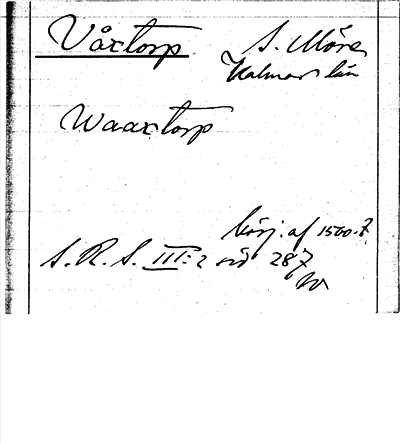 Våxtorp
S. Möre
Kalmar län
Waaxtorp
börj. af 1500-t.
S. R. S. III:2 sid 287